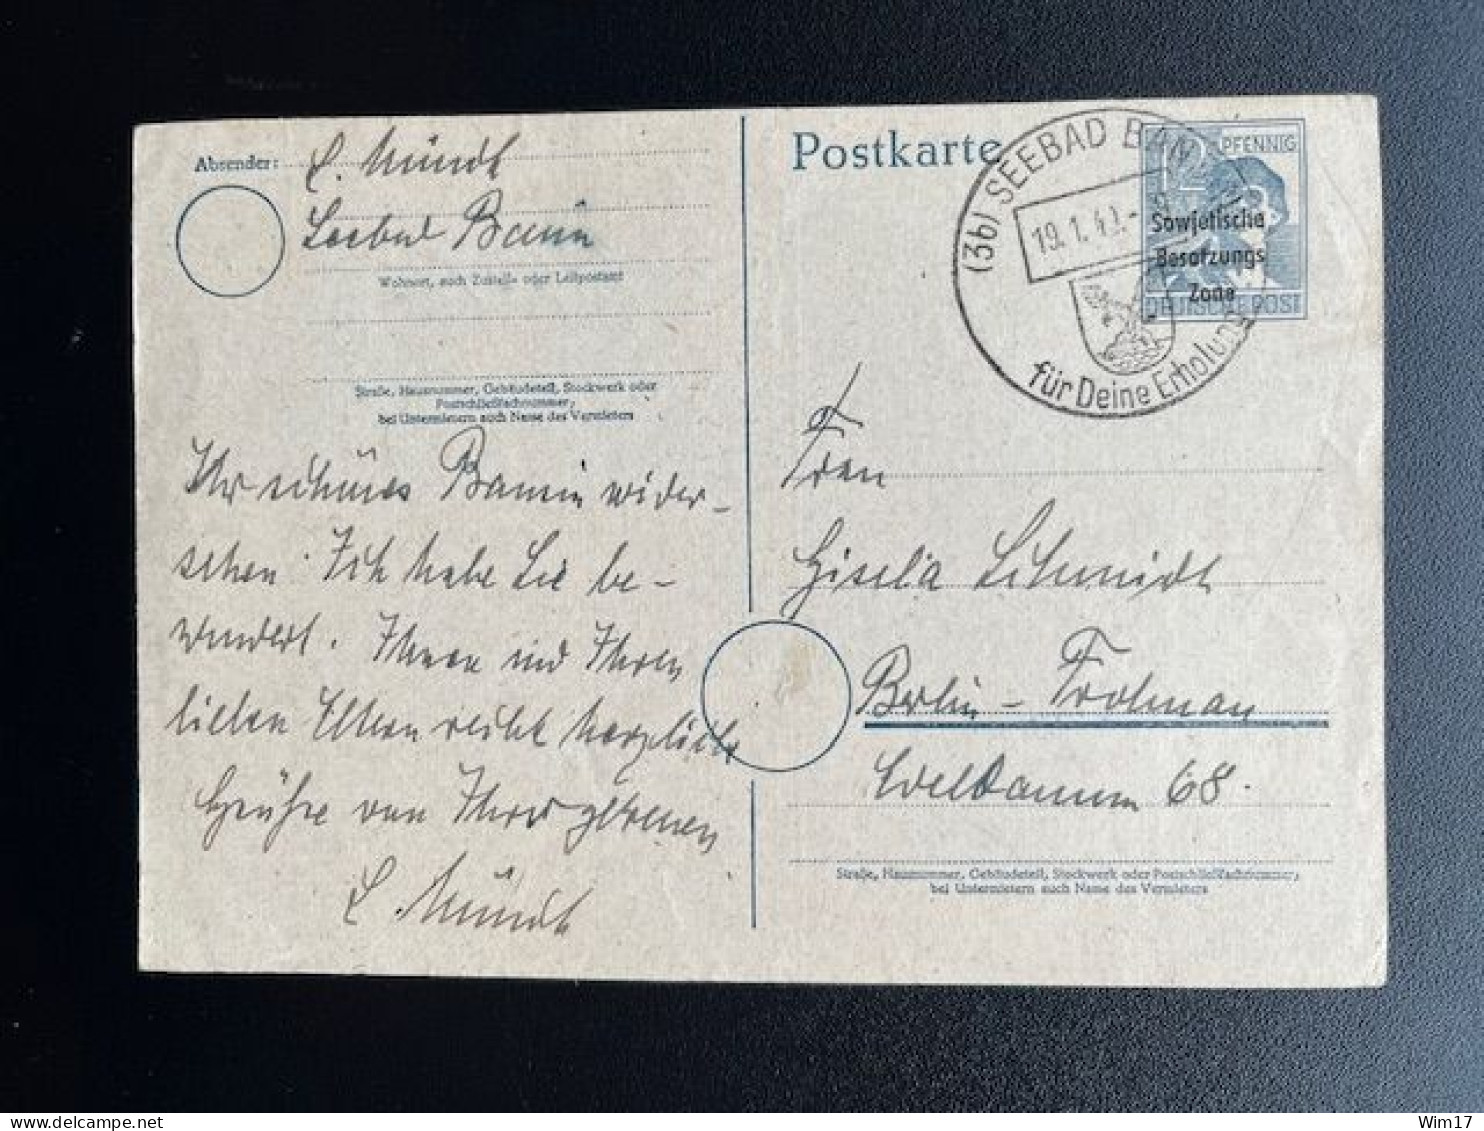 Absender: L. Mündt
Seebad Bansin
Wohnort, auch Zustell- oder Leitpostamt
Straße, Hausnummer, Gebäudeteil, Stockwerk oder
Postschließfachnummer;
bei Untermietern auch Name des Vermieters
Ihr schönes Bansin wider-
sehen. Ich habe Sie be-
wundert. Ihnen und Ihren
lieben Eltern recht herzliche
Grüße von Ihrer
L. Mündt
Postkarte
(3b) SEEBAD BAN
19.1.49.-
für Deine Erholung
12 PFENNIG
Sowjetische
Besatzungs
Zone
DEUTSCHE POST
Frau
Gisela Schmidt
Berlin - Frohnau
68.
Straße, Hausnummer, Gebäudeteil, Stockwerk oder Postschließfachnummer;
bei Untermietern auch Name des Vermieters
Wim17